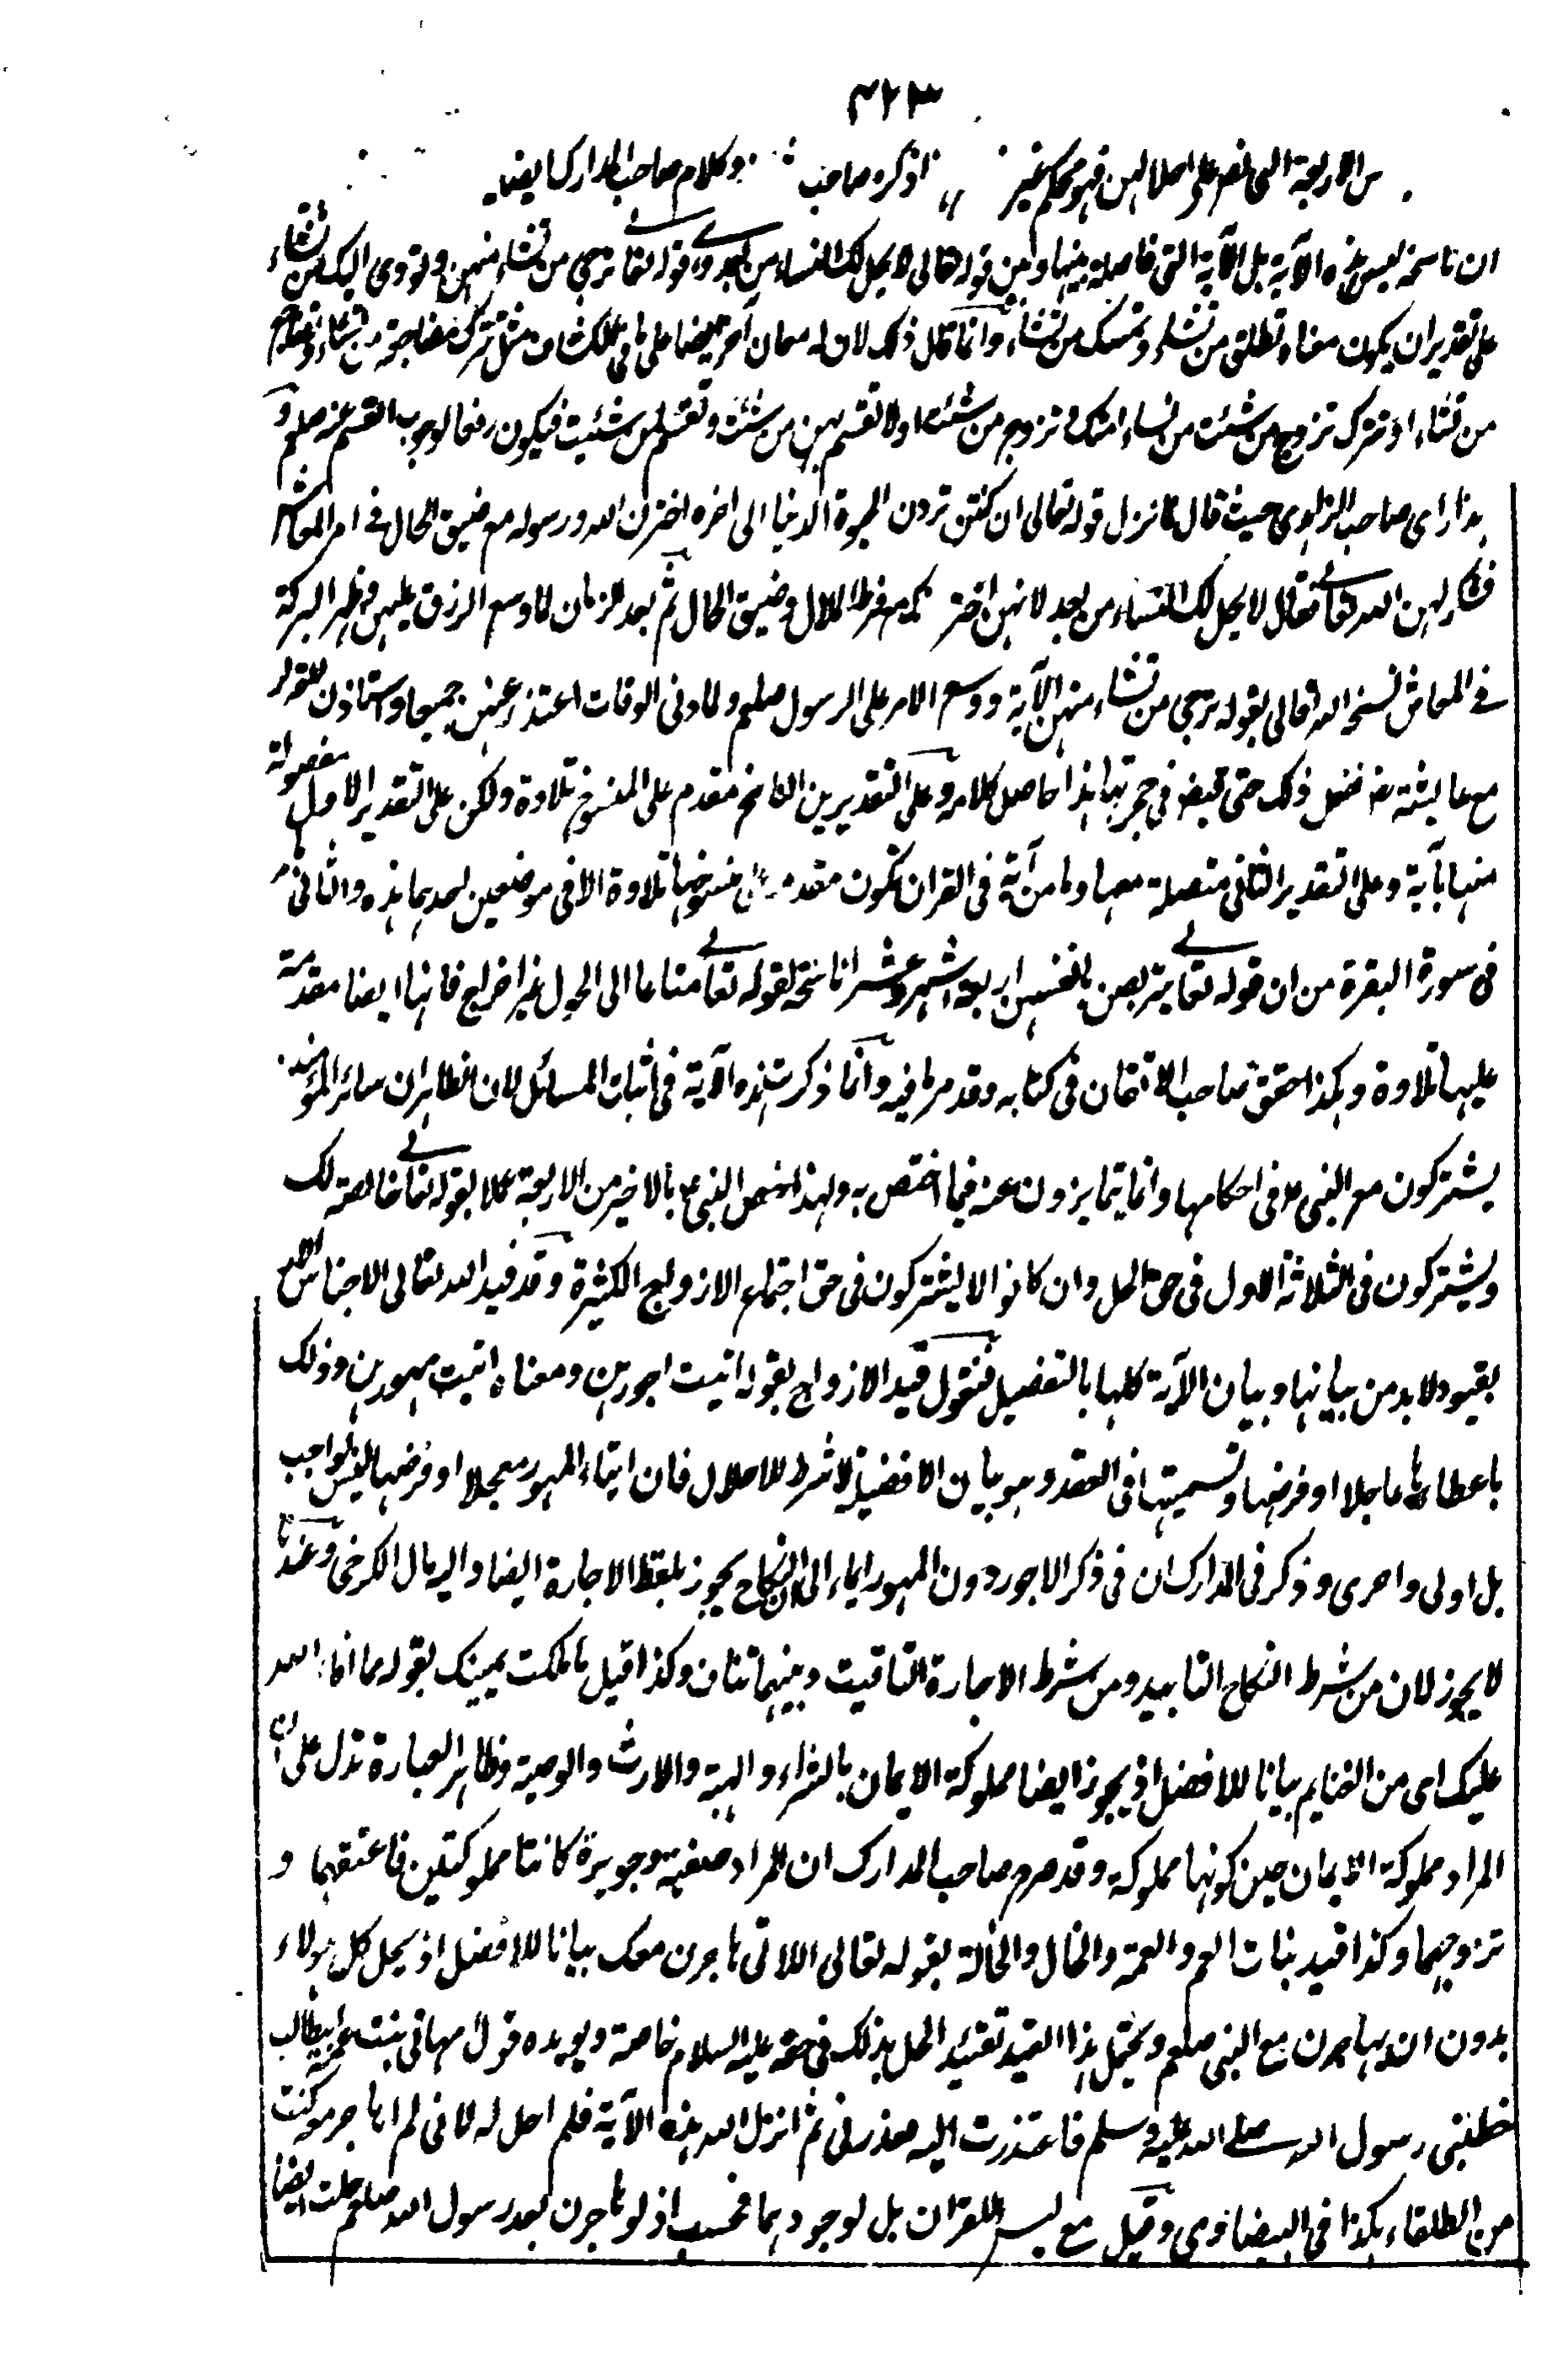 ٤٢٣
من الاربعة التى نص على احلالهن فهو محكم غير اذكره صاحب وكلام صاحب المدارك ايضا
ان ناسخه ليس هذه الآية بل الآية التى فاصلة بينها وبين قوله تعالى لا يحل لك النساء من بعد وهو قوله تعالى ترجى من تشاء منهن وتؤوى اليك من تشاء
على تقدير ان يكون معناه تطلق من تشاء وتمسك من تشاء وانما قال ذلك لان له معان آخر ايضا على ما فى الكشاف مثل تترك مضاجعة من تشاء وتضاجع
من تشاء او تترك تزوج من شئت من نساء امتك وتزوج من شئت او لا تقسم لهن من شئت وتقسم لمن شئت فيكون رفعا لوجوب القسم عنه صلعم و
هذا رأى صاحب الزاهدى حيث قال لما نزل قوله تعالى ان كنتن تردن الحيوة الدنيا الى اخره اخترن الله ورسوله مع ضيق الحال فى امر المعاش
فشكر لهن الله تعالى فقال لا يحل لك النساء من بعد لانهن اختر مع فرط الملال وضيق الحال ثم بعد الزمان لما وسع الرزق عليهن وظهر البركة
فى المعاش نسخه الله تعالى بقوله ترجى من تشاء منهن الآية ووسع الامر على الرسول صلعم ولما دنى الوفات اعتذر عنهن جميعا واستاذن للتفرد
مع عايشة رض ففعل ذلك حتى قبض فى حجرتها هذا حاصل كلامه وعلى التقديرين الناسخ مقدم على المنسوخ تلاوة ولكن على التقدير الاول مفصولة
منها بآية وعلى التقدير الثانى متصلة معها وما من آية فى القران تكون مقدمة على منسوخها تلاوة الا فى موضعين احدهما هذه والثانى
فى سورة البقرة من ان قوله تعالى يتربصن بانفسهن اربعة اشهر وعشرا ناسخة لقوله تعالى متاعا الى الحول غير اخراج فانها ايضا مقدمة
عليها تلاوة وهكذا حقق صاحب الاتقان فى كتابه وقد مر ما فيه وانما ذكرت هذه الآية فى اثبات المسائل لان الظاهر ان سائر المؤمنين
يشتركون مع النبى ع فى احكامها وانما يتمايزون عنه فيما اختص به ولهذا خص النبى ع بالاخير من الاربعة كلا بقوله تعالى خالصة لك
ويشتركون فى الثلاثة الاول فى حق الحل وان كانوا لا يشتركون فى حق اجتماع الازواج الكثيرة وقد قيد الله تعالى الاجناس الاربع
بقيود لا بد من بيانها وبيان الآية كلها بالتفصيل فنقول قيد الازواج بقوله اتيت اجورهن ومعناه اتيت مهورهن وذلك
باعطائها عاجلا او فرضها وتسميتها فى العقد وهو بيان الافضلية لا شرط للاحلال فان ايتاء المهور معجلا او فرضها ليس بواجب
بل اولى واحرى وذكر فى المدارك ان فى ذكر الاجور دون المهور ايماء الى ان النكاح يجوز بلفظ الاجارة ايضا واليه مال الكرخى وعندنا
لا يجوز لان من شرط النكاح التابيد ومن شرط الاجارة التاقيت وبينهما تناف وكذا قيل ما ملكت يمينك بقوله مما افاء الله
عليك اى من الغنايم بيانا للافضل اذ يجوز ايضا مملوكة الايمان بالشراء والهبة والارث والوصية وظاهر العبارة تدل على ان
المراد مملوكة الايمان حين كونها مملوكة وقد صرح صاحب المدارك ان المراد صفية وجويرة كانتا مملوكتين فاعتقهما و
تزوجهما وكذا قيد بنات العم والعمة والخال والخالة بقوله تعالى اللاتى هاجرن معك بيانا للافضل اذ يحل كل هؤلاء
بدون ان يهاجرن مع النبى صلعم ويحتمل هذا القيد تقييد الحل بذلك فى حقه عليه السلام خاصة ويويده قول امهانى بنت عمه ابيطالب
خطبنى رسول الله صلى الله عليه وسلم فاعتذرت اليه فعذرنى ثم انزل الله هذه الآية فلم احل له لانى لم اهاجر معه كنت
من الطلقاء هكذا فى البيضاوى وقيل مع ليس للقران بل لوجودهما فحسب اذ لو هاجرن بعد رسول الله صلعم حلت ايضا